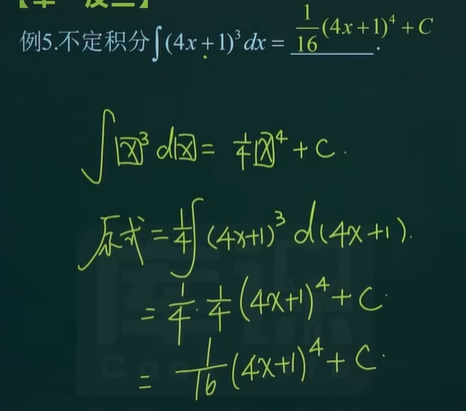 【举一反三】
例5.不定积分∫(4x+1)³dx= 1/16(4x+1)⁴+C.
∫x³dx= 1/4x⁴+C.
原式=1/4∫(4x+1)³d(4x+1).
=1/4·1/4(4x+1)⁴+C.
=1/16(4x+1)⁴+C.
库课